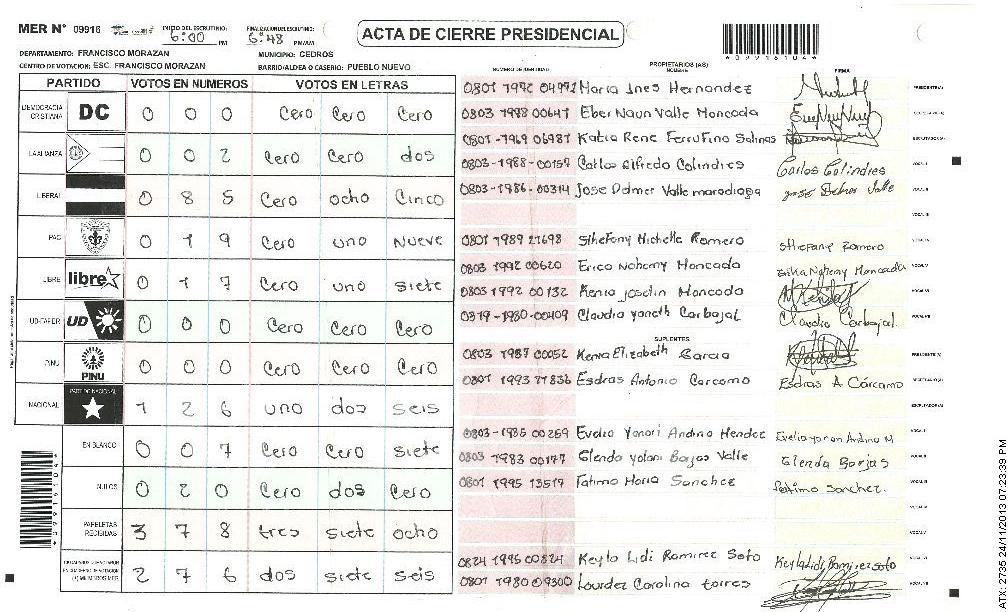 MER N° 09916
INICIO DEL ESCRUTINIO: 6:00 PM
FINALIZACION ESCRUTINIO: 6:48 PM/AM
ACTA DE CIERRE PRESIDENCIAL
*099161046*
DEPARTAMENTO: FRANCISCO MORAZAN
MUNICIPIO: CEDROS
CENTRO DE VOTACION: ESC. FRANCISCO MORAZAN
BARRIO/ALDEA O CASERIO: PUEBLO NUEVO
PARTIDO VOTOS EN NUMEROS VOTOS EN LETRAS
DEMOCRACIA CRISTIANA DC 0 0 0 Cero Cero Cero
LA ALIANZA 0 0 2 Cero Cero dos
LIBERAL 0 8 5 Cero ocho Cinco
PAC 0 1 9 Cero uno Nueve
LIBRE libre 0 1 7 Cero uno siete
UD-FAPER UD 0 0 0 Cero Cero Cero
PINU PINU 0 0 0 Cero Cero Cero
NACIONAL PARTIDO NACIONAL 1 2 6 uno dos seis
EN BLANCO 0 0 7 Cero Cero siete
NULOS 0 2 0 Cero dos Cero
PAPELETAS RECIBIDAS 3 7 8 tres siete ocho
2 7 6 dos siete seis
NUMERO DE IDENTIDAD PROPIETARIOS (AS) NOMBRE FIRMA
0801 1992 04992 Maria Ines Hernandez PRESIDENTE(A)
0803 1998 00647 Eber Naun Valle Moncada
0801-1969 06987 Katia Rene Ferrufino Salinas
0803-1988-00157 Carlos Alfredo Colindres Carlos Colindres VOCAL I
0803-1986-00314 Jose Delmer Valle maradiaga jose Delmer Valle VOCAL II
VOCAL III
0801 1989 21698 Sthefany Michelle Romero Sthefany Romero VOCAL IV
0803 1992 00620 Erica Nohemy Moncada Erika Nohemy Moncada VOCAL V
0803 1992 00132 Kenia joselin Moncada VOCAL VI
0319-1980-00409 Claudia yaneth Carbajal Claudia Carbajal. VOCAL VII
SUPLENTES
0803 1987 00052 Kenia Elizabeth Garcia PRESIDENTE (A)
0801 1993 11836 Esdras Antonio Carcamo Esdras A Cárcamo SECRETARIO(A)
ESCRUTADOR(A)
0803-1985 00259 Evelia Yanori Andino Mendez Evelia yanori Andino M VOCAL I
0803 1983 00177 Glenda yolani Borjas Valle Glenda Borjas VOCAL II
0801 1995 13517 Fatima Maria Sanchez Fatima Sanchez. VOCAL III
VOCAL IV
VOCAL V
0824 1995 00824 Keyla Lidi Ramirez Soto Keyla Lidi Ramirez soto VOCAL VI
0801 1980 09300 Lourdez Carolina torres VOCAL VII
ATX-2735 24/11/2013 07:23:39 PM